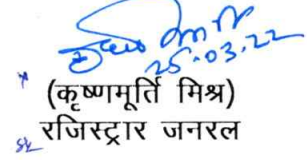 25.03.22
(कृष्णमूर्ति मिश्र)
रजिस्ट्रार जनरल